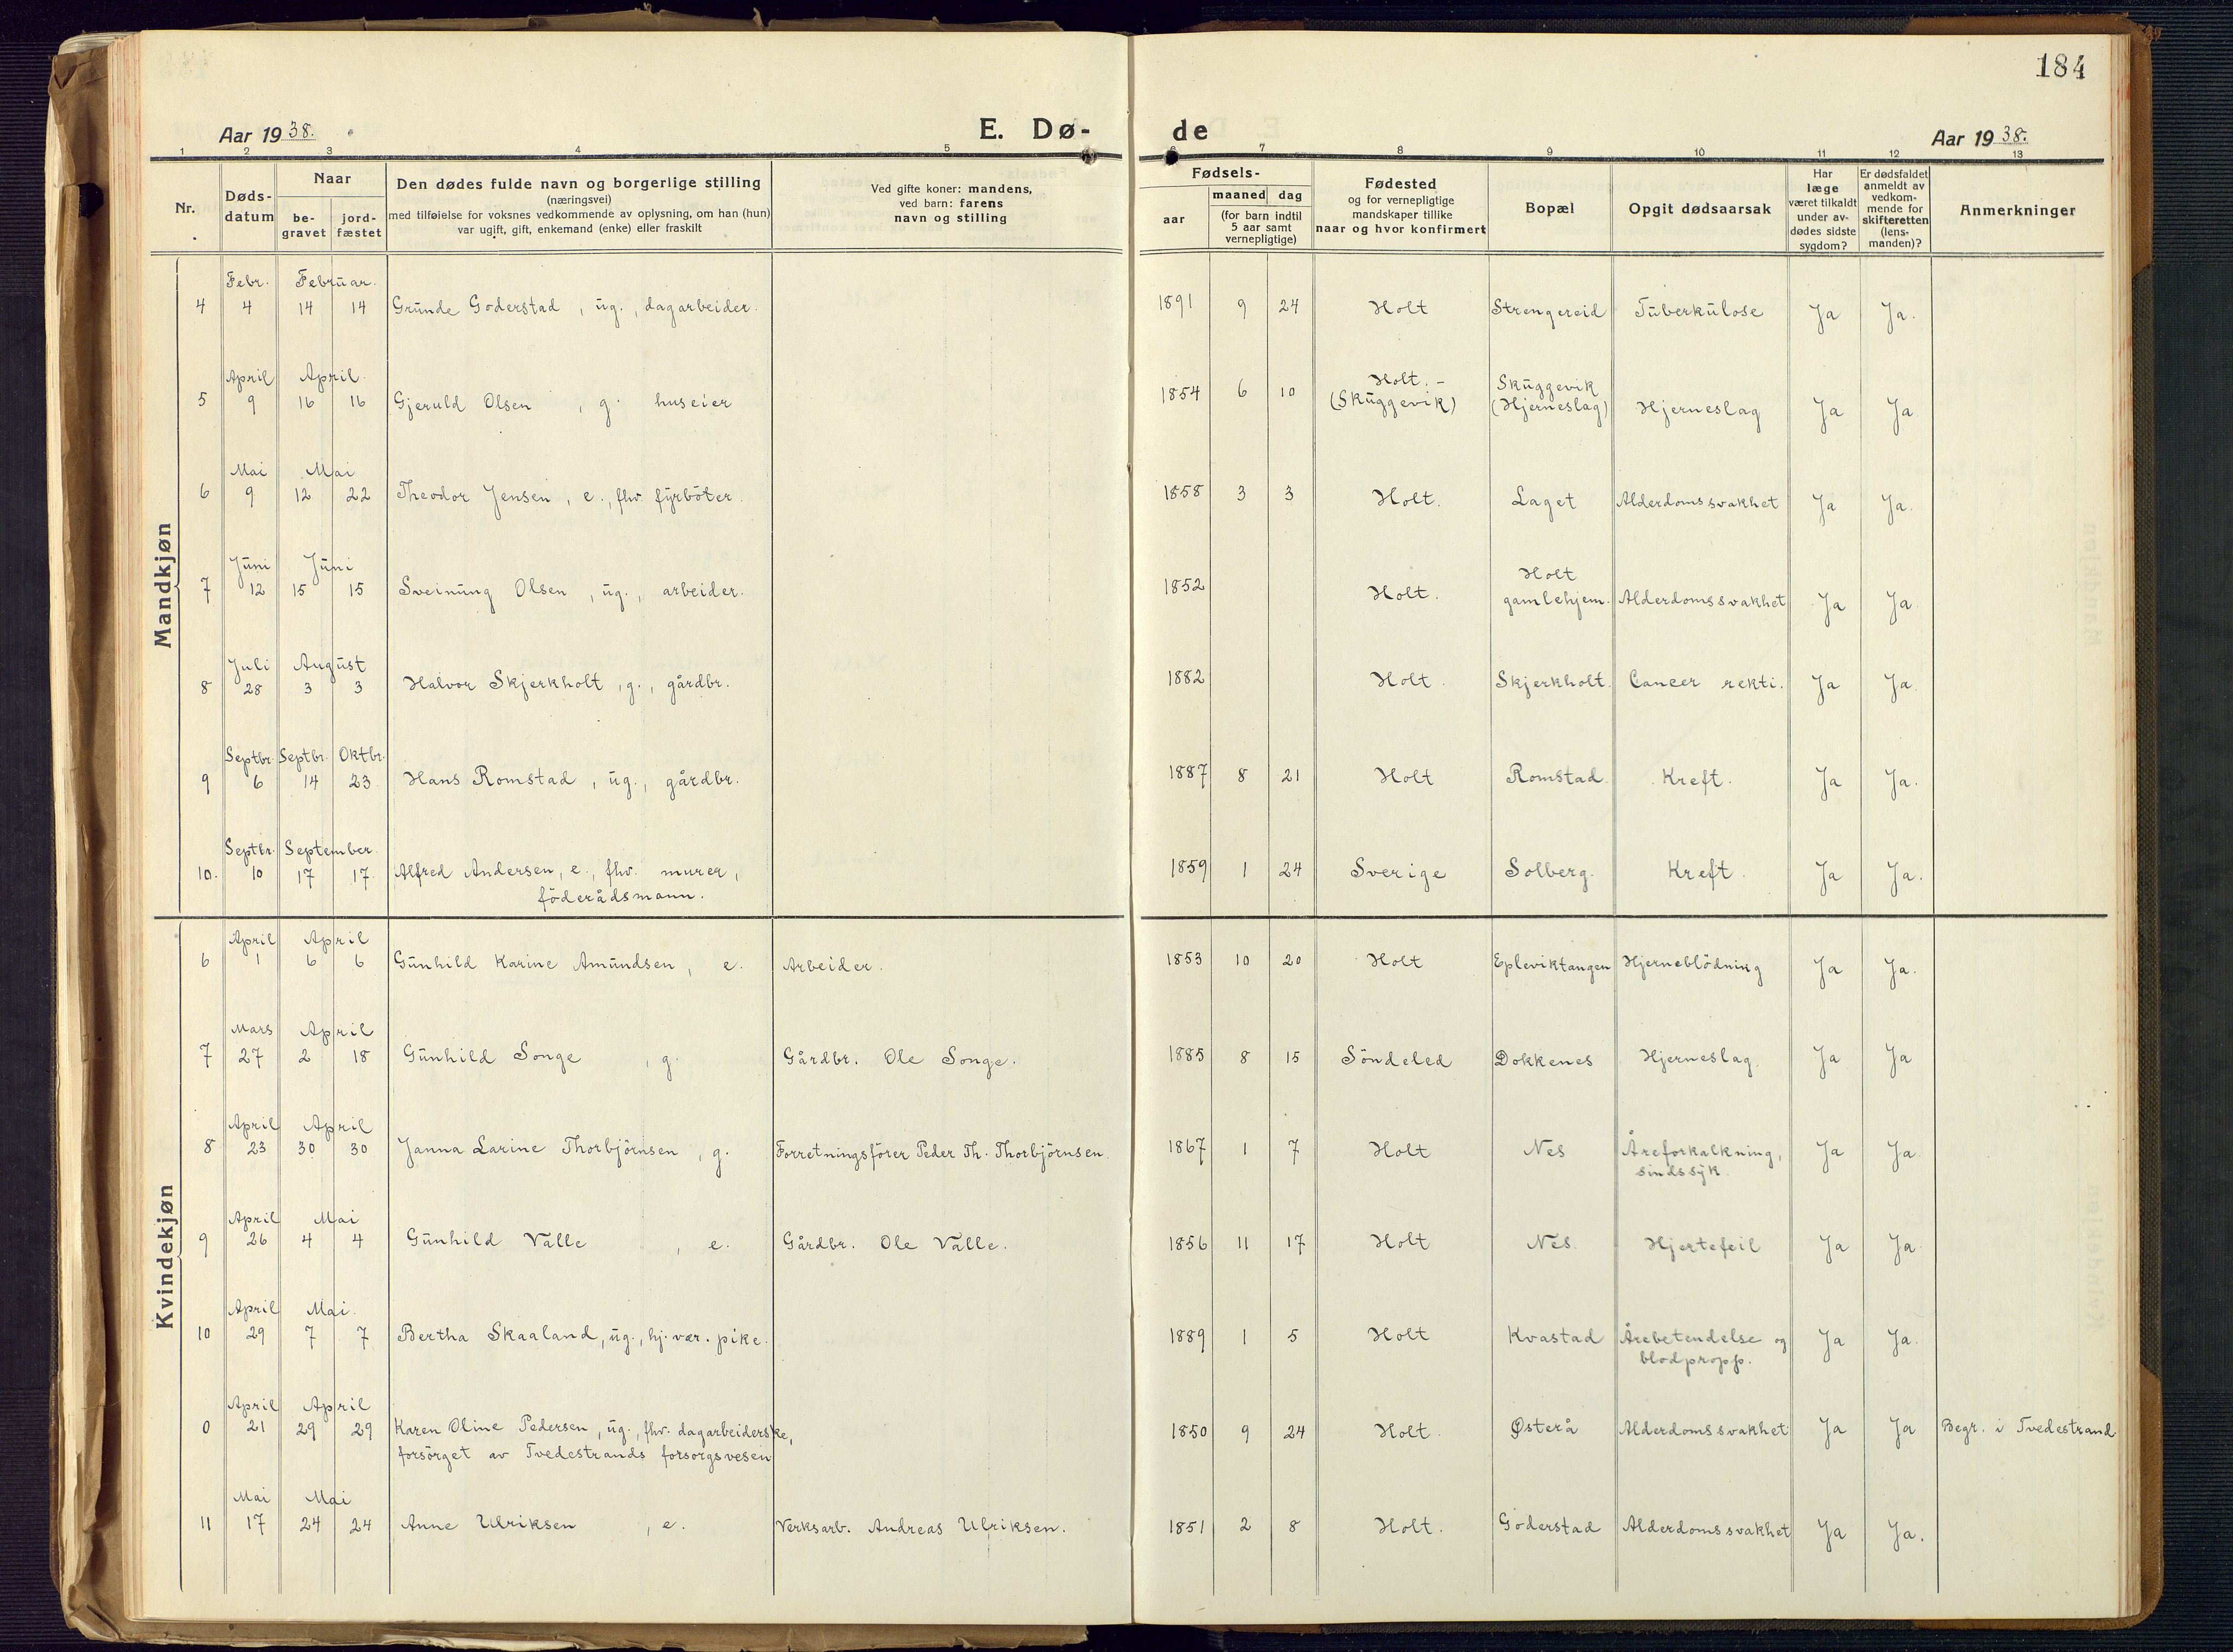 184
Aar 1938.
E. Dø-
de
Aar 1938.
1 2 3 4 5 6 7 8 9 10 11 12 13
Nr.
Døds-
datum
Naar
be-
gravet
jord-
fæstet
Den dødes fulde navn og borgerlige stilling
(næringsvei)
med tilføielse for voksnes vedkommende av oplysning, om han (hun)
var ugift, gift, enkemand (enke) eller fraskilt
Ved gifte koner: mandens,
ved barn: farens
navn og stilling
Fødsels-
aar
maaned dag
(for barn indtil
5 aar samt
vernepligtige)
Fødested
og for vernepligtige
mandskaper tillike
naar og hvor konfirmert
Bopæl
Opgit dødsaarsak
Har
læge
været tilkaldt
under av-
dødes sidste
sygdom?
Er dødsfaldet
anmeldt av
vedkom-
mende for
skifteretten
(lens-
manden)?
Anmerkninger
Mandkjøn
Febr. Februar.
4 4 14 14 Grunde Goderstad, ug., dagarbeider. 1891 9 24 Holt Strengereid Tuberkulose Ja Ja.
April April Holt. - Skuggevik
5 9 16 16 Gjeruld Olsen, g. huseier 1854 6 10 (Skuggevik) (Hjerneslag) Hjerneslag Ja Ja
Mai Mai
6 9 12 22 Theodor Jensen, e., fhv. fyrböter. 1858 3 3 Holt. Laget Alderdomssvakhet Ja Ja.
Juni Juni Holt
7 12 15 15 Sveinung Olsen, ug., arbeider. 1852 Holt. gamlehjem. Alderdomssvakhet Ja Ja
Juli August
8 28 3 3 Halvor Skjerkholt, g., gårdbr. 1882 Holt. Skjerkholt. Cancer rekti. Ja Ja
Septbr. Septbr. Oktbr.
9 6 14 23 Hans Romstad, ug., gårdbr. 1887 8 21 Holt Romstad Kreft. Ja Ja.
Septbr. September.
10. 10 17 17 Alfred Andersen, e., fhv. murer, 1859 1 24 Sverige Solberg. Kreft. Ja Ja.
föderådsmann.
Kvindekjøn
April April
6 1 6 6 Gunhild Karine Amundsen, e. Arbeider. 1853 10 20 Holt Epleviktangen Hjerneblödning Ja Ja.
Mars April
7 27 2 18 Gunhild Songe, g. Gårdbr. Ole Songe. 1885 8 15 Söndeled Dokkenes Hjerneslag. Ja Ja
April April
8 23 30 30 Janna Larine Thorbjörnsen, g. Forretningsförer Peder Th. Thorbjörnsen. 1867 1 7 Holt Nes Åreforkalkning, Ja Ja
sindssyk.
April Mai
9 26 4 4 Gunhild Valle, e. Gårdbr. Ole Valle. 1856 11 17 Holt Nes. Hjertefeil Ja Ja
April Mai.
10 29 7 7 Bertha Skaaland, ug., hj. vær. pike. 1889 1 5 Holt Kvastad Årebetendelse og Ja Ja.
blodpropp.
April April
0 21 29 29 Karen Oline Pedersen, ug., fhv. dagarbeiderske, 1850 9 24 Holt. Østerå Alderdomssvakhet Ja Ja Begr. i Tvedestrand
forsörget av Tvedestrands forsorgsvesen
Mai Mai
11 17 24 24 Anne Ulriksen, e. Verksarb. Andreas Ulriksen. 1851 2 8 Holt. Goderstad Alderdomssvakhet Ja Ja.